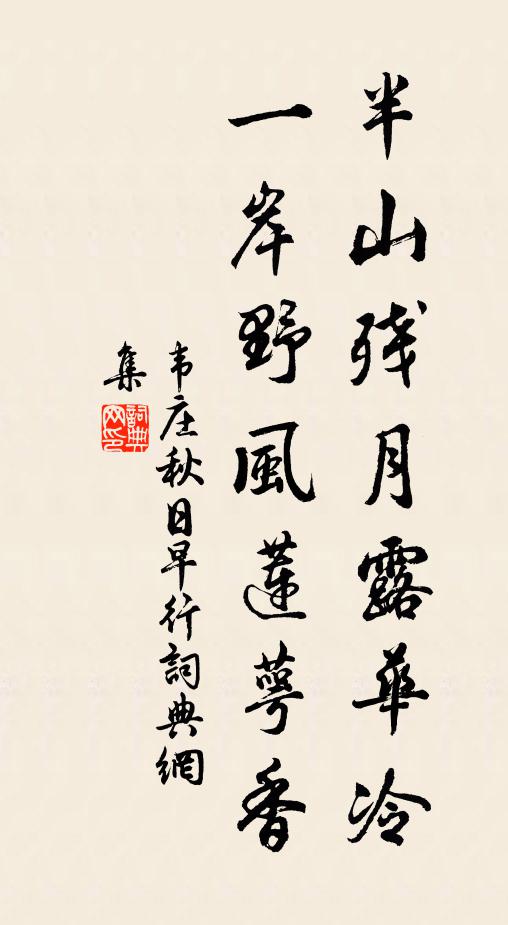 半山残月露華冷
一岸野風蓮萼香
韦庄秋日早行詞典網
集
詞典網印